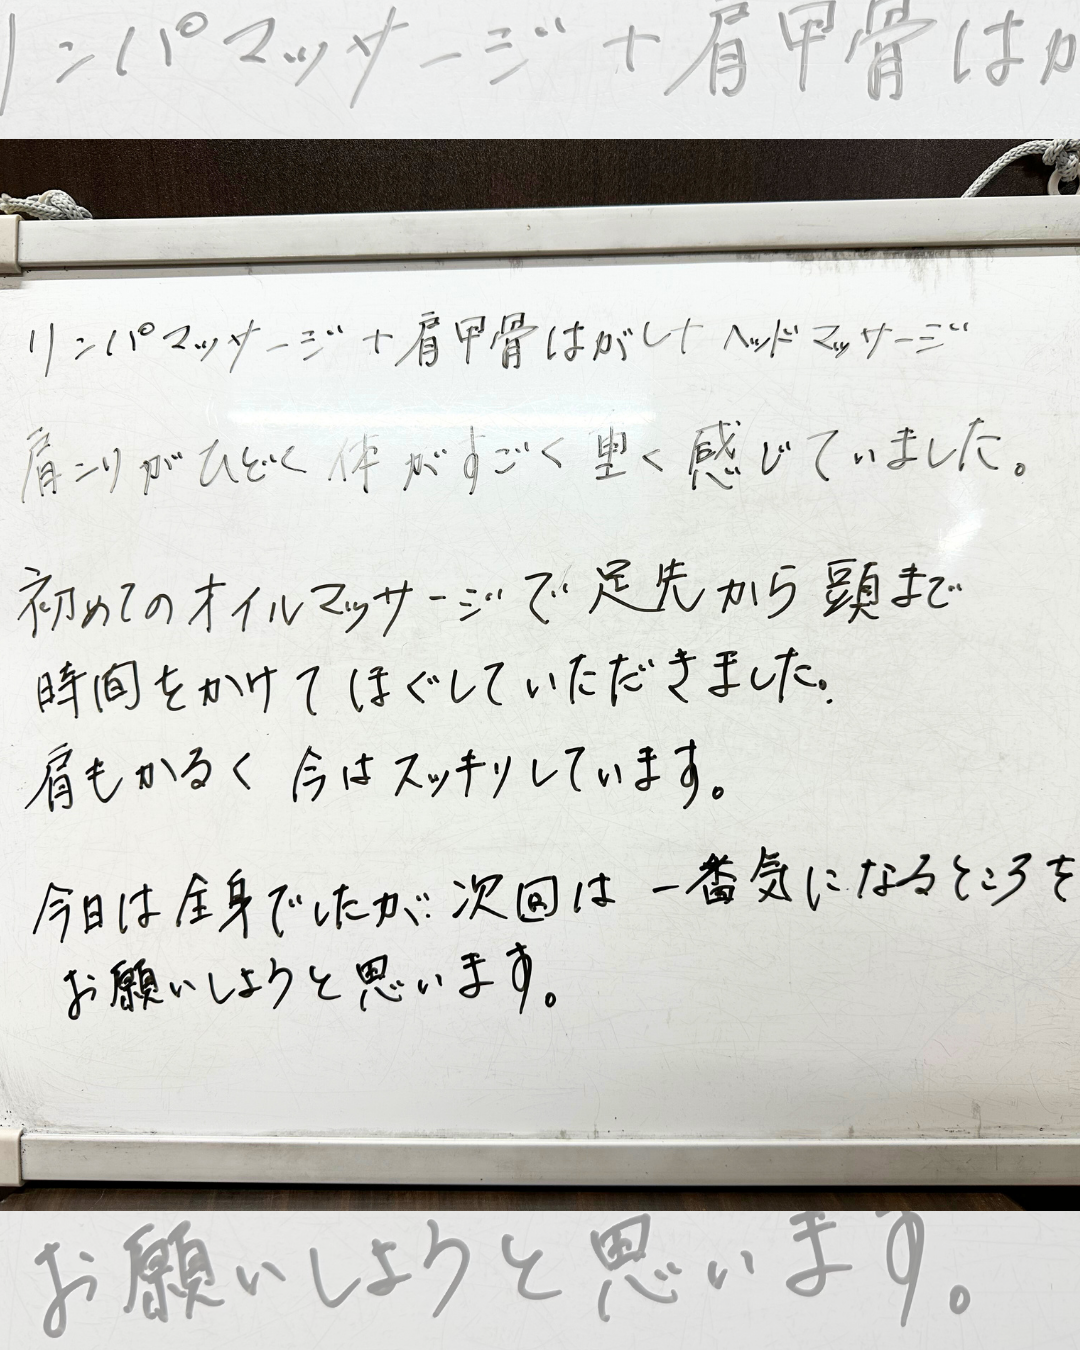 リンパマッサージ+肩甲骨はが
リンパマッサージ+肩甲骨はがし+ヘッドマッサージ
肩こりがひどく体がすごく重く感じていました。
初めてのオイルマッサージで足先から頭まで
時間をかけてほぐしていただきました。
肩もかるく今はスッキリしています。
今日は全身でしたが、次回は一番気になるところを
お願いしようと思います。
お願いしようと思います。